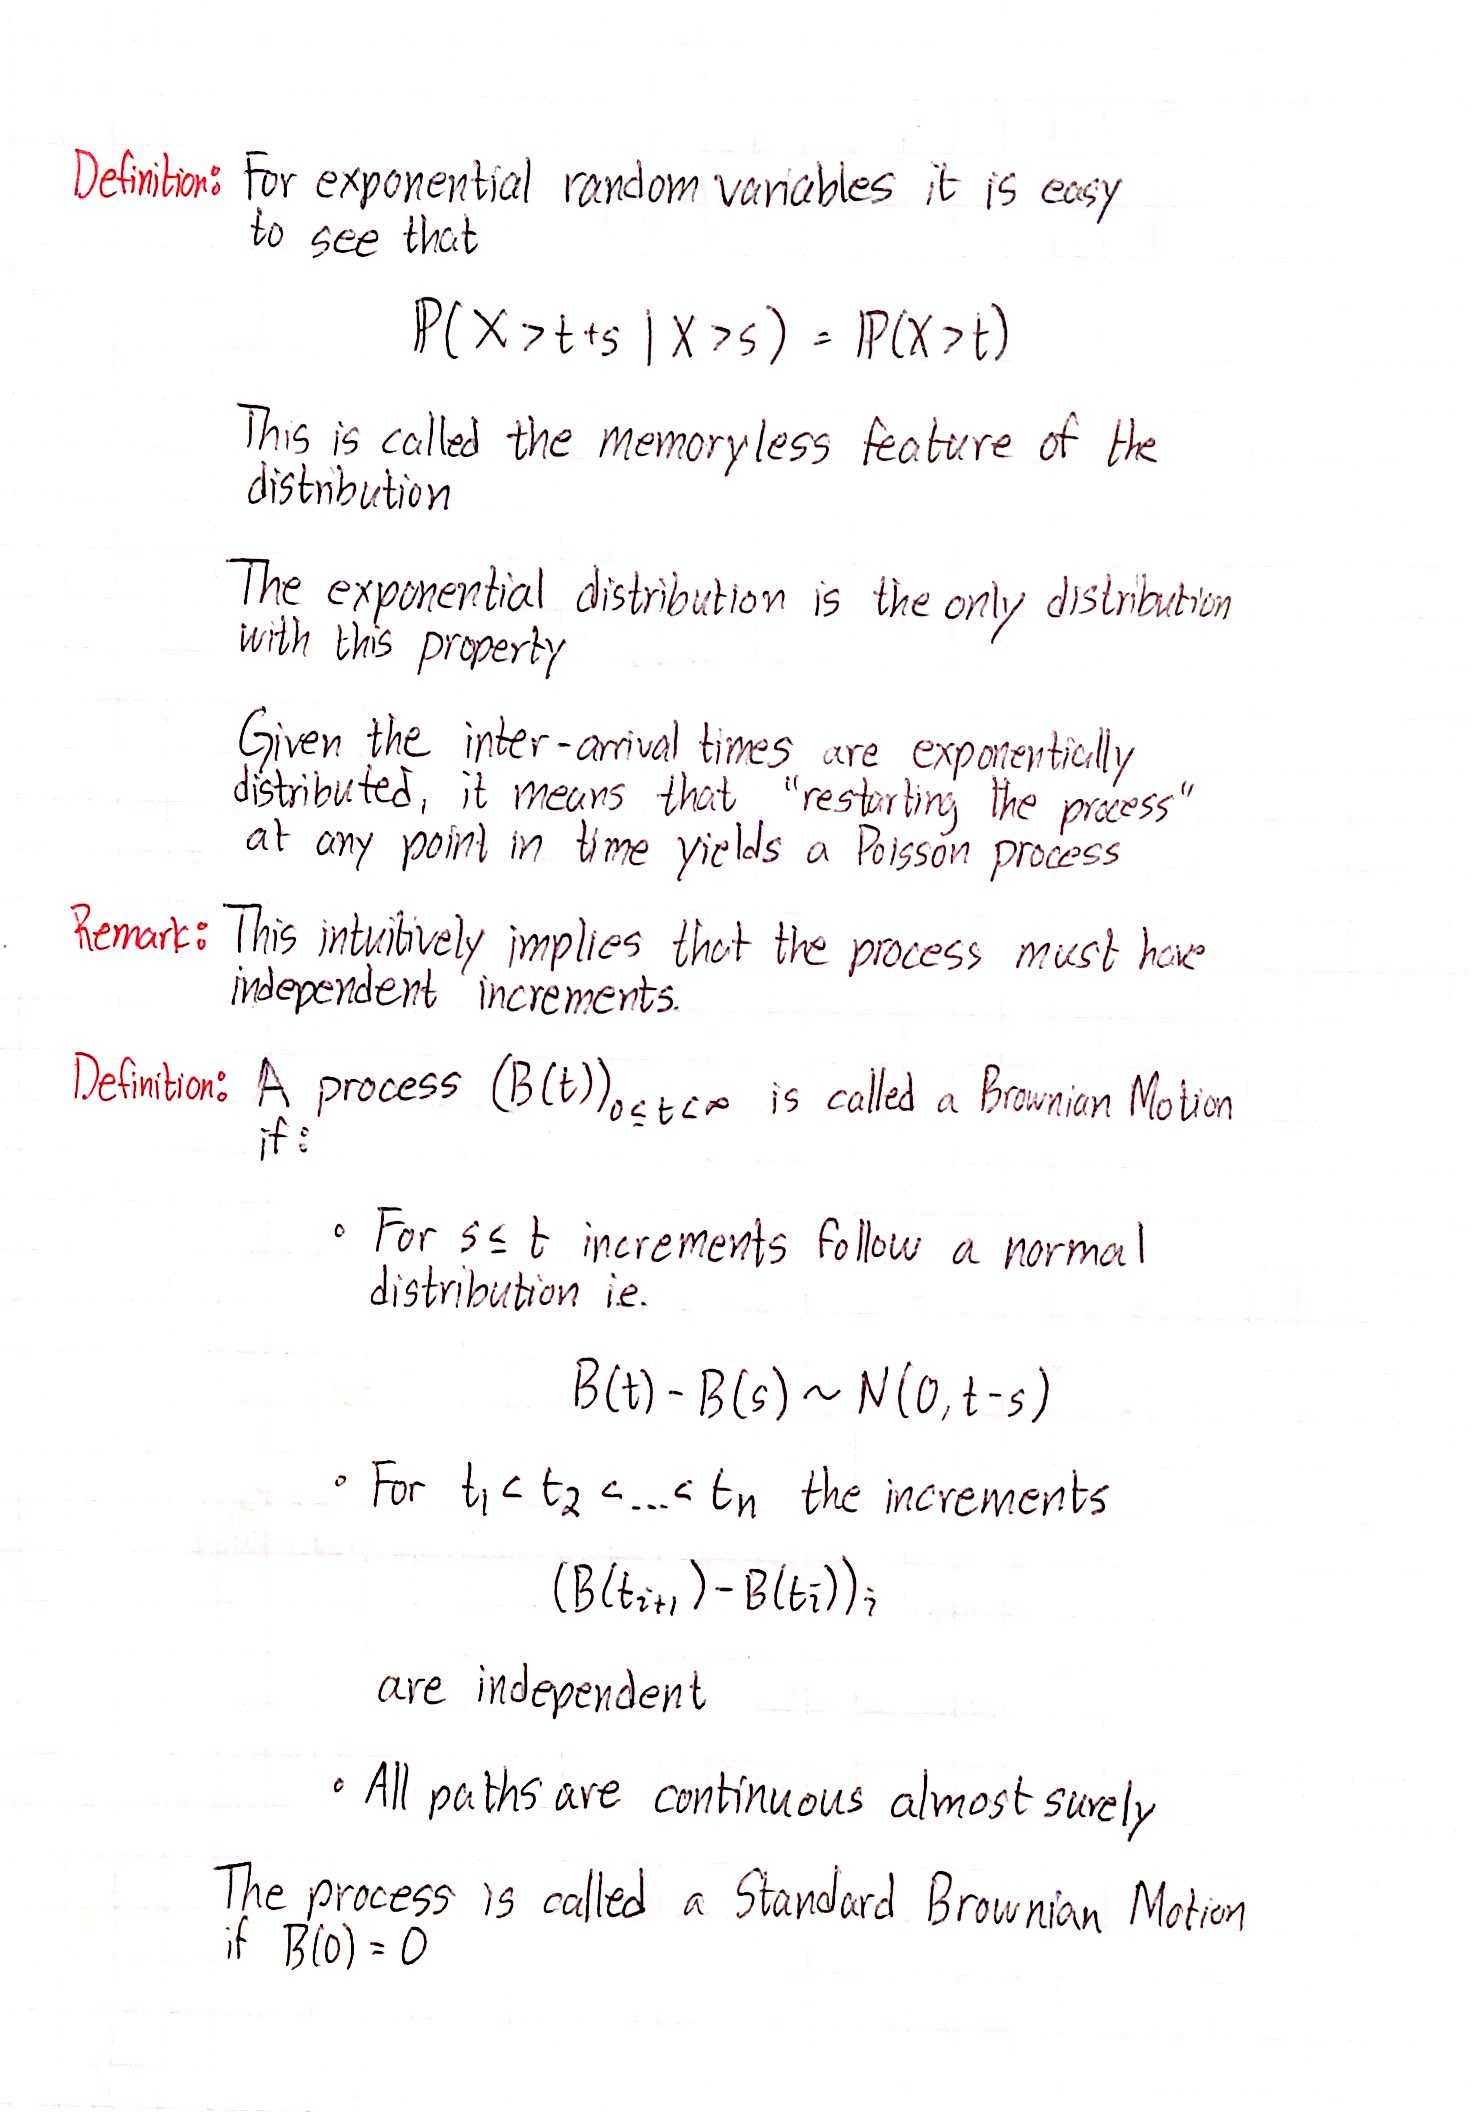 Definition: For exponential random variables it is easy
to see that
ℙ(X>t+s | X>s) = ℙ(X>t)
This is called the memoryless feature of the
distribution
The exponential distribution is the only distribution
with this property
Given the inter-arrival times are exponentially
distributed, it means that "restarting the process"
at any point in time yields a Poisson process
Remark: This intuitively implies that the process must have
independent increments.
Definition: A process (B(t))₀≤t<∞ is called a Brownian Motion
if:
• For s ≤ t increments follow a normal
distribution ie.
B(t) - B(s) ~ N(0, t-s)
• For t₁ < t₂ < ... < tₙ the increments
(B(tᵢ₊₁) - B(tᵢ))ᵢ
are independent
• All paths are continuous almost surely
The process is called a Standard Brownian Motion
if B(0) = 0